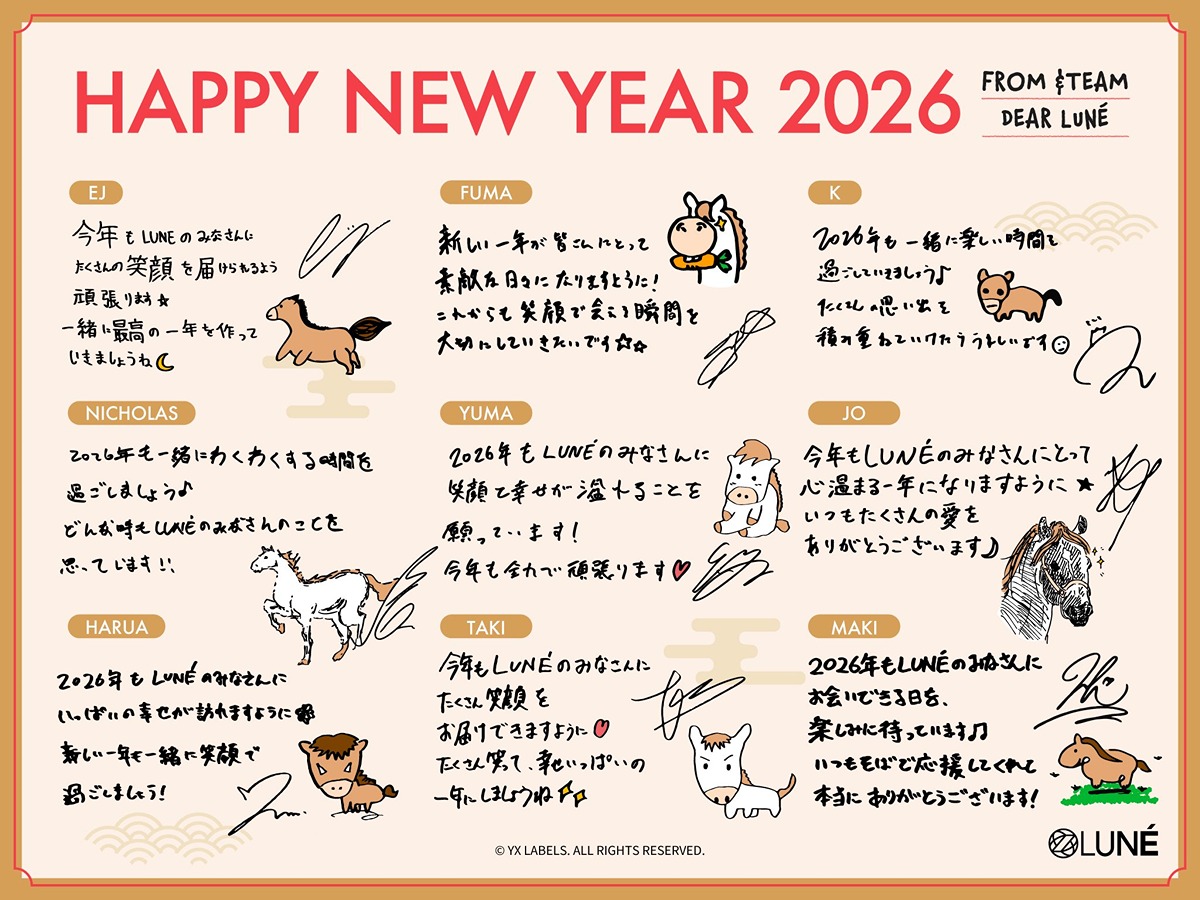 HAPPY NEW YEAR 2026
FROM &TEAM
DEAR LUNÉ
EJ
今年も LUNE のみなさんに
たくさんの笑顔を届けられるよう
頑張ります☆
一緒に最高の一年を作って
いきましょうね
FUMA
新しい一年が皆さんにとって
素敵な日々になりますように!
これからも笑顔で会える瞬間を
大切にしていきたいです☆☆
K
2026年も一緒に楽しい時間を
過ごしていきましょう♪
たくさんの思い出を
積み重ねていけたらうれしいです
NICHOLAS
2026年も一緒にわくわくする時間を
過ごしましょう♪
どんな時もLUNÉのみなさんのことを
思っています!!
YUMA
2026年もLUNÉのみなさんに
笑顔と幸せが溢れることを
願っています!
今年も全力で頑張ります♥
JO
今年もLUNÉのみなさんにとって
心温まる一年になりますように★
いつもたくさんの愛を
ありがとうございます♪
HARUA
2026年もLUNÉのみなさんに
いっぱいの幸せが訪れますように
新しい一年も一緒に笑顔で
過ごしましょう!
TAKI
今年もLUNÉのみなさんに
たくさん笑顔を
お届けできますように♥
たくさん笑って、幸せいっぱいの
一年にしましょうね
MAKI
2026年もLUNÉのみなさんに
お会いできる日を、
楽しみに待っています♫
いつもそばで応援してくれて
本当にありがとうございます!
© YX LABELS. ALL RIGHTS RESERVED.
LUNÉ